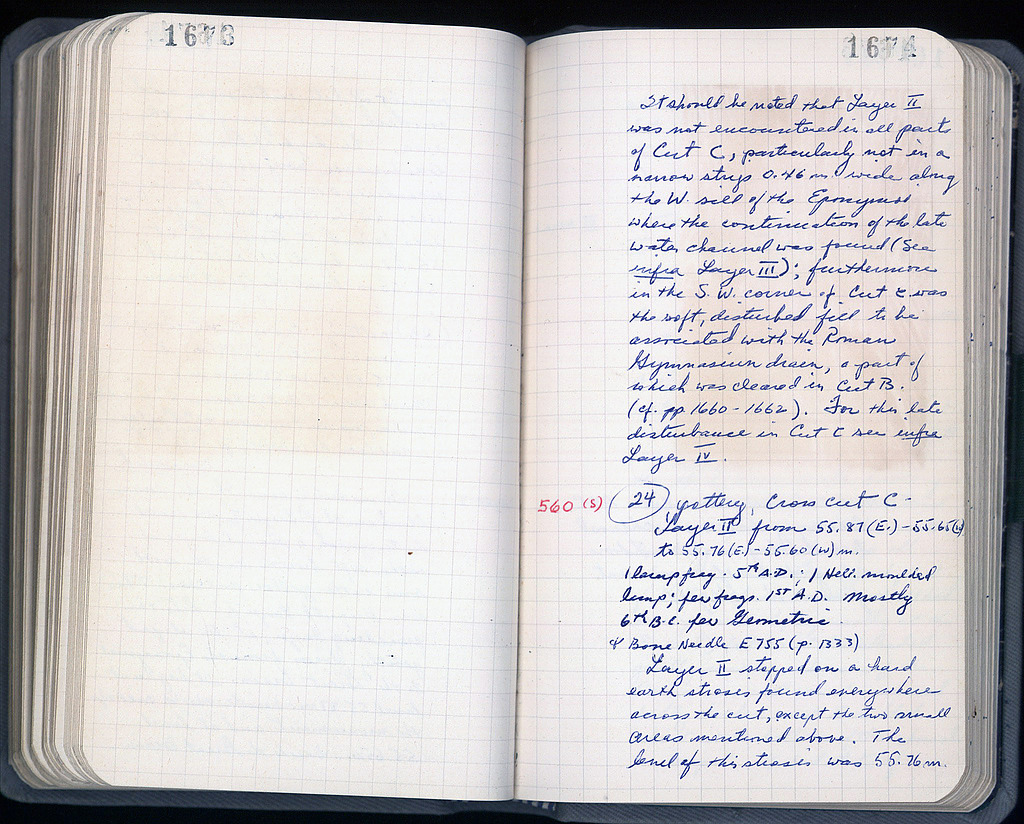 1673
1674
It should be noted that Layer II
was not encountered in all parts
of Cut C, particularly not in a
narrow strip 0.46 m. wide along
the W. sill of the Eponymoi
where the continuation of the late
water channel was found (See
infra Layer III); furthermore
in the S.W. corner of Cut C was
the soft, disturbed fill to be
associated with the Roman
Gymnasium drain, a part of
which was cleared in Cut B.
(cf. pp. 1660-1662). For this late
disturbance in Cut C see infra
Layer IV.
560 (S) 24 pottery, Cross Cut C -
Layer II from 55.87(E.) - 55.65(W)
to 55.76(E.) - 55.60(W) m.
1 lamp frag. 5th A.D.; 1 Hell. moulded
lamp; few frags. 1st A.D. Mostly
6th B.C. few Geometric.
& Bone Needle E 755 (p. 1333)
Layer II stopped on a hard
earth strosis found everywhere
across the cut, except the two small
areas mentioned above. The
level of this strosis was 55.76 m.